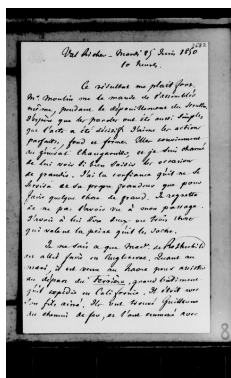 2682
Val Richer - Mardi 25 Juin 1850
10 heures.
Ce résultat me plait fort.
Mr. Moulin me le mande de l'assemblée
même, pendant le dépouillement du scrutin
J'espère que les paroles ont été aussi simples
que l'acte a été décisif. J'aime les actions
parfaites, fond et forme. Elles conviennent
au général Changarnier et je suis charmé
de lui voir si bien saisir les occasions
de grandir. J'ai la confiance qu'il ne se
servira de sa propre grandeur que pour
faire quelque chose de grand. Je regrette
de ne pas l'avoir vu à mon passage.
J'avois à lui dire deux ou trois choses
qui valent la peine qu'il les sache.
Je ne sais ce que Made. de Rothschild
est allée faire en Angleterre. Quant au
mari, il est venu au havre pour assister
au départ du grand bâtiment
qu'il expédie en Californie. Il étoit avec
son fils ainé. Ils ont trouvé Guillaume
au chemin de fer, et l'ont emmené avec
8